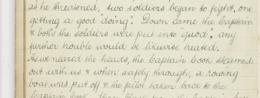 as he threatened, two soldiers began to fight, one
getting a good doing. Down came the Captain
& both the soldiers were put into quod; any
further trouble would be likewise treated.
As we neared the heads, the Captain book steamed
out with us & when safely through, a rowing
boat was put off & the pilot taken back to the